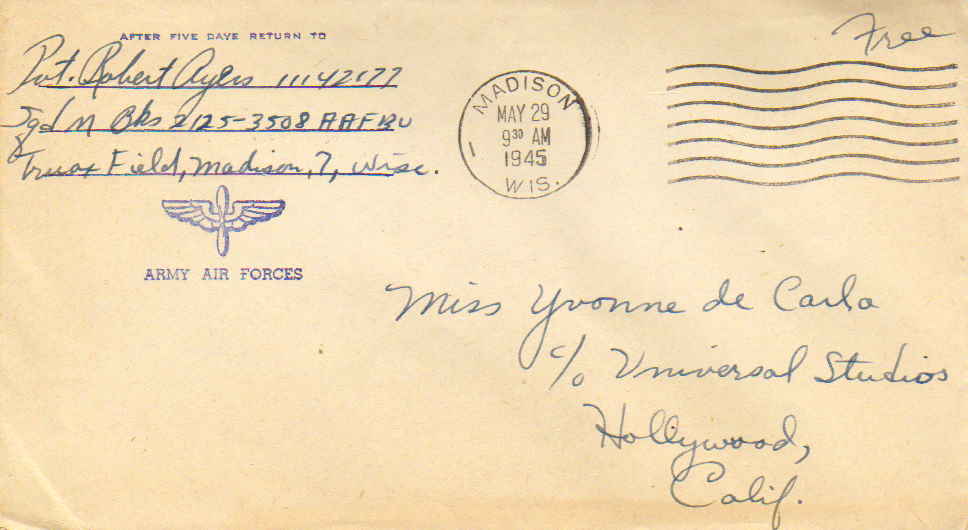 AFTER FIVE DAYS RETURN TO
Pvt. Robert Ayers 11142177
Sqd M Bks 2125-3508 AAFBU
Truax Field, Madison, 7, Wisc.
ARMY AIR FORCES
MADISON
1
MAY 29
9 30 AM
1945
WIS.
Free
Miss Yvonne de Carlo
c/o Universal Studios
Hollywood,
Calif.